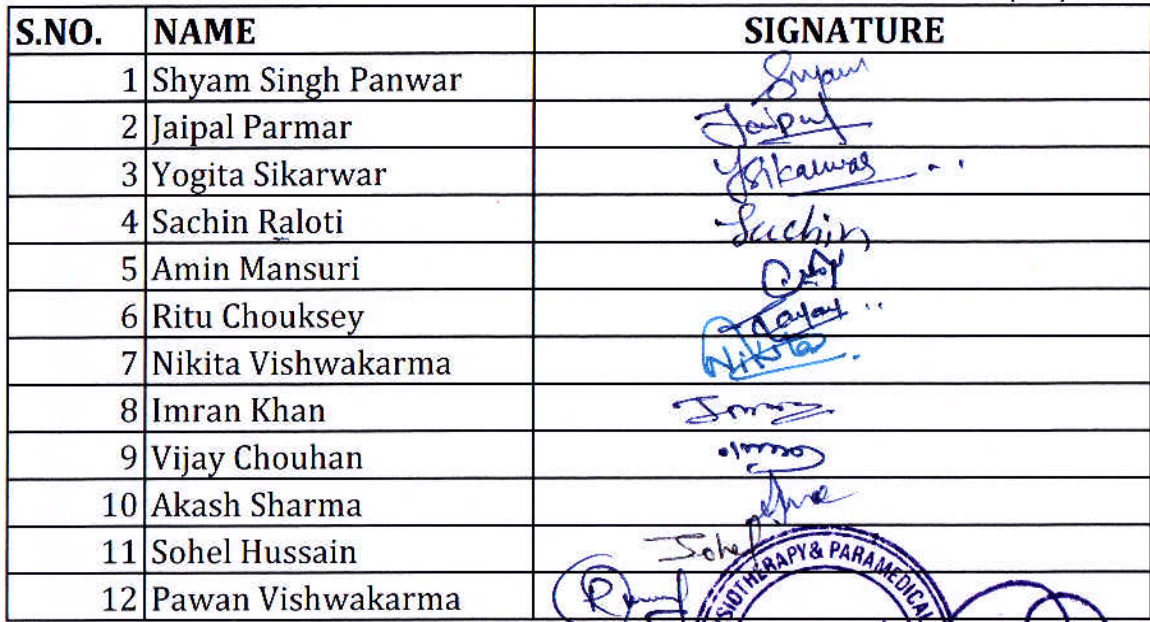 S.NO. NAME SIGNATURE
1 Shyam Singh Panwar Shyam
2 Jaipal Parmar Jaipal
3 Yogita Sikarwar Ysikarwar
4 Sachin Raloti Sachin
5 Amin Mansuri
6 Ritu Chouksey
7 Nikita Vishwakarma Nikita
8 Imran Khan
9 Vijay Chouhan
10 Akash Sharma
11 Sohel Hussain Sohel
12 Pawan Vishwakarma
SIOTHERAPY & PARAMEDICAL